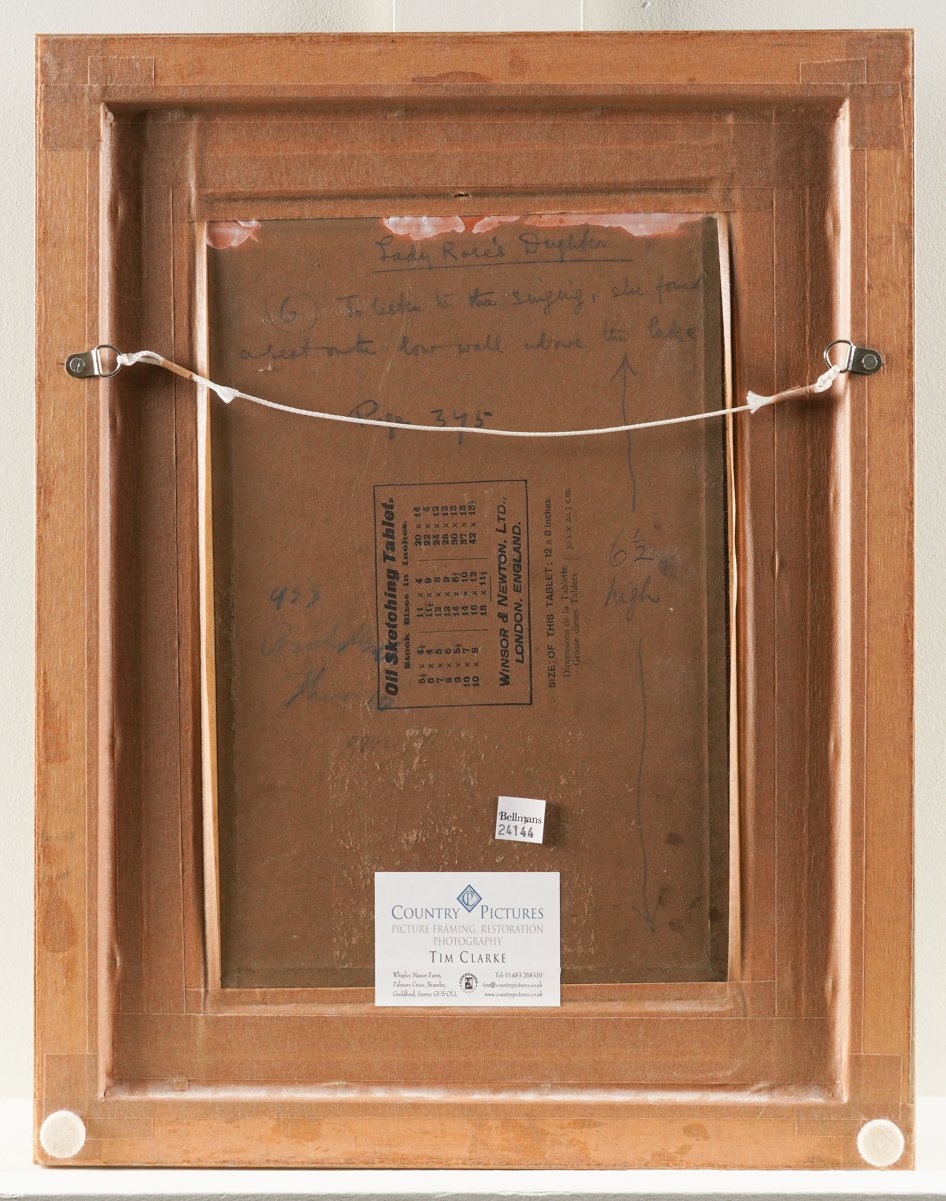 Lady Rose's Dughter
(6) To listen to the singing, she found
a seat on the low wall above the lake
Page 375
6½"
high
923
Oil Sketching Tablet.
Stock Sizes in Inches.
5½ x 4½ 11 x 4 20 x 14
6 x 4 11½ x 9 22 x 4
7 x 5 12 x 8 24 x 12
8 x 6 12 x 9 28 x 12
9 x 5½ 14 x 6½ 30 x 13
10 x 7 14 x 10 37 x 13
10 x 8 16 x 12 42 x 19½
18 x 11½
WINSOR & NEWTON, LTD.,
LONDON, ENGLAND.
SIZE OF THIS TABLET: 12 x 8 inches.
Dimensions de la Tablette 30.5 x 20.3 c.m.
Grösse dieses Tablets
Bellmans
24144
COUNTRY PICTURES
PICTURE FRAMING, RESTORATION
PHOTOGRAPHY
TIM CLARKE
Whipley Manor Farm, Tel: 01483 268310
Palmers Cross, Bramley, tim@countrypictures.co.uk
Guildford, Surrey GU5 0LL www.countrypictures.co.uk